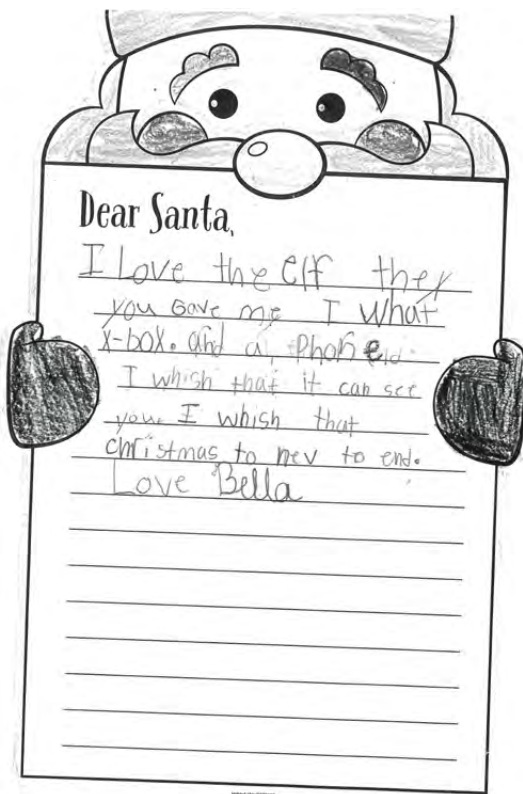 Dear Santa,
I Love the Elf they
you Gave me I What
X-box. and a Phone
I whish that it can see
you. I whish that
christmas to nev to end.
Love Bella